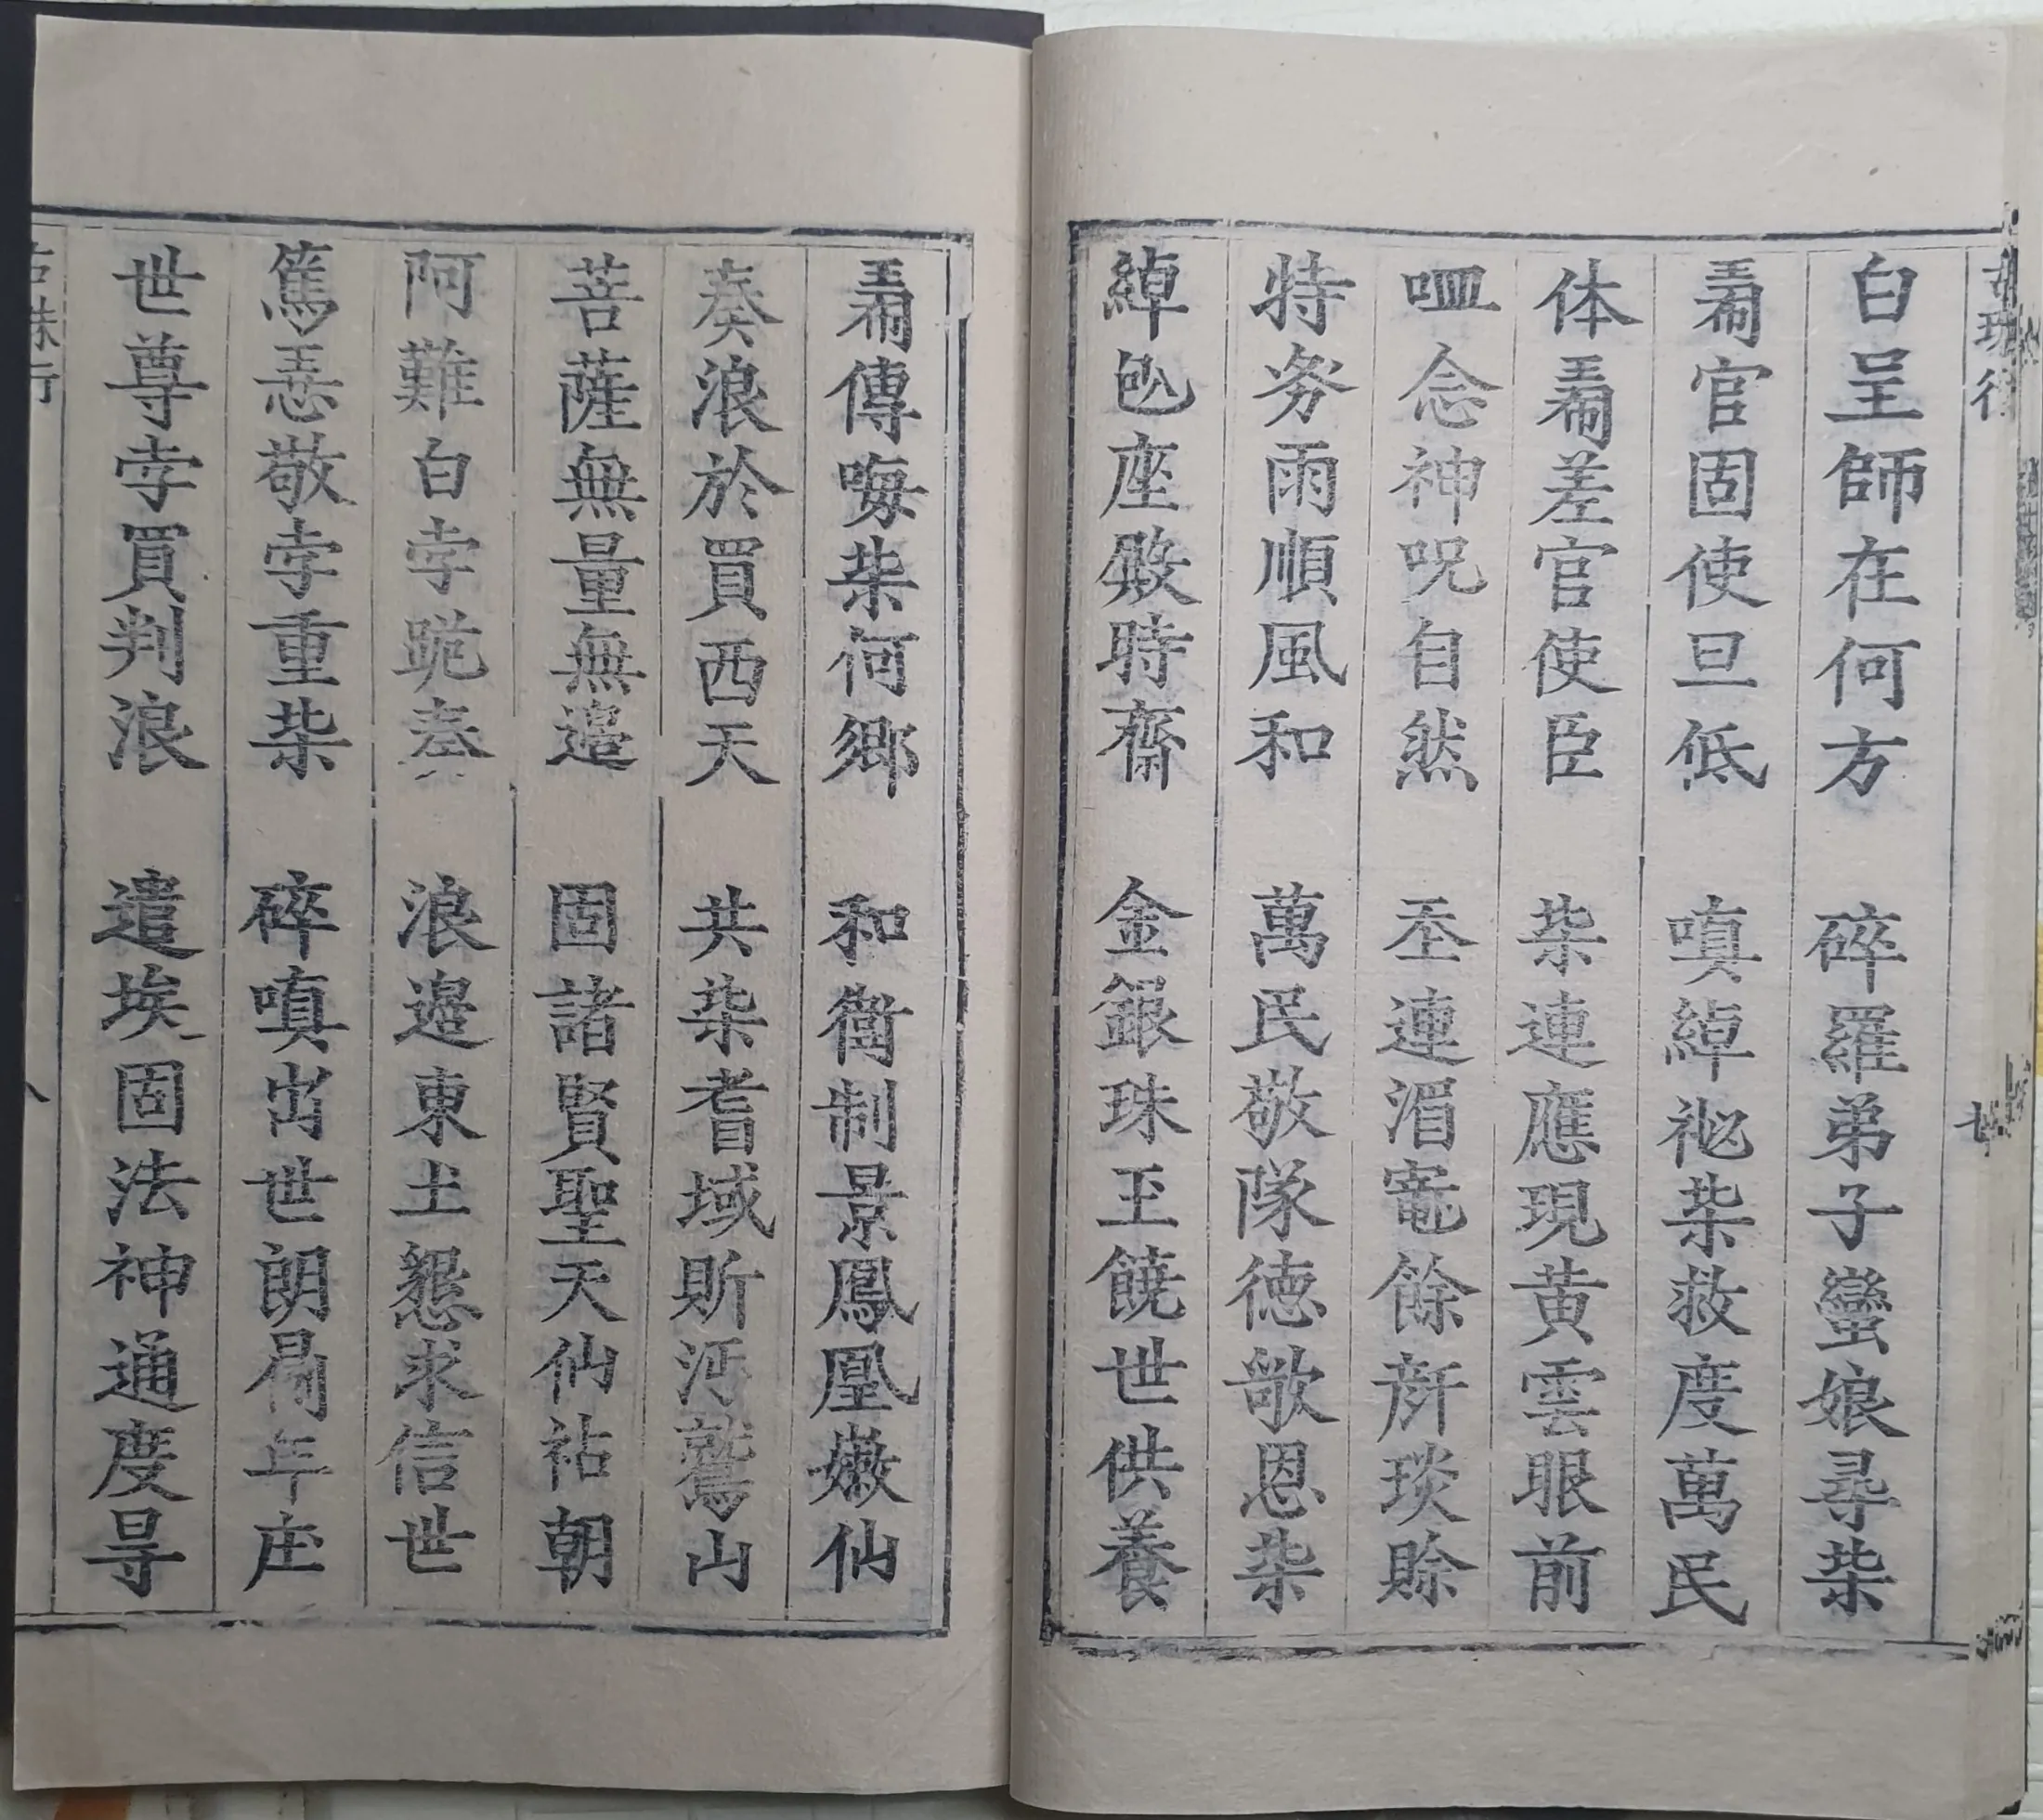 白呈師在何方 碎羅弟子蠻娘尋柴
官固使旦低 嗔綽祕柴救度萬民
体差官使臣 柴連應現黄雲眼前
𠰺念神呪自然 㐀連湄竈餘𣂔琰賒
特务雨順風和 萬民敬隊德歆恩柴
綽座殿時齋 金銀珠玉饒世供養
傳喚柴何鄉 和衛制景鳳凰媺仙
奏浪於買西天 共柴耆域斯沔鷲山
菩薩無量無邊 固諸賢聖天仙祜朝
阿難白孛跪奏 浪邉東土懇求信世
篤惡敬孛重柴 碎嗔世朗年庄
世尊孛買判浪 遣埃固法神通度㝵
古珠行